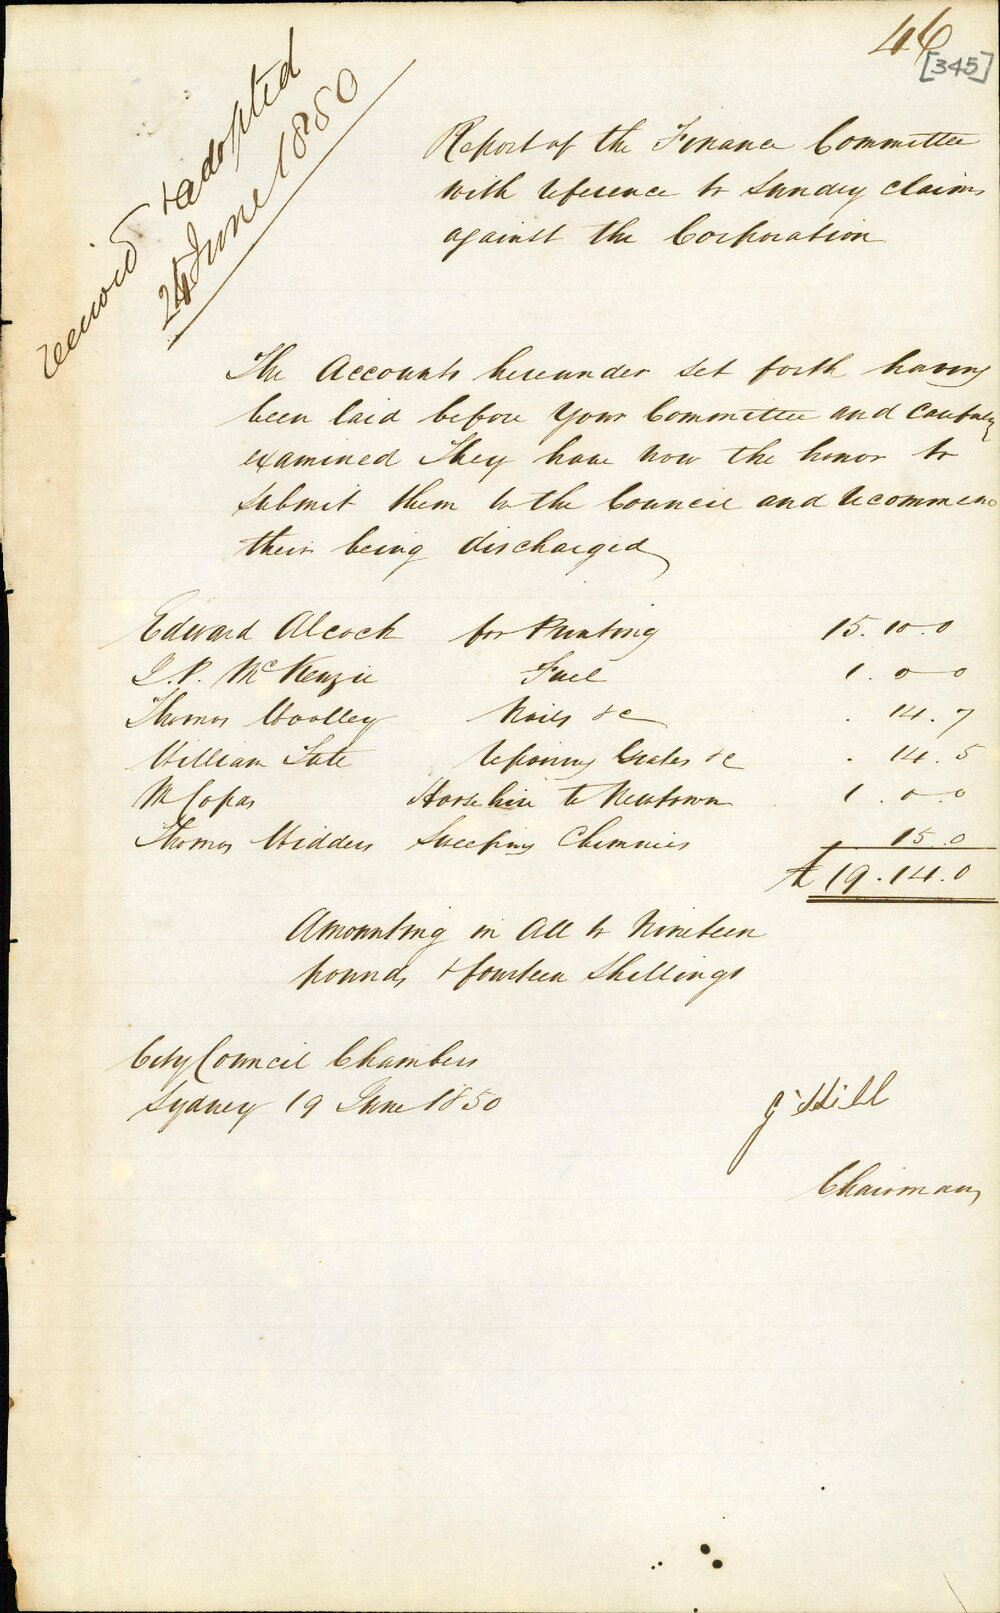 46
[345]
received & adopted
24 June 1850
Report of the Finance Committee
with reference to Sundry claims
against the Corporation
The Accounts hereunder set forth having
been laid before Your Committee and carefully
examined They have now the honor to
submit them to the Council and recommend
their being discharged
Edward Alcock for Printing 15.10.0
J.P. McKenzie Fuel 1.0.0
Thomas Woolley Nails &c . 14.7
William Tate repairing Grates &c . 14.5
M Copas Horse hire to Newtown 1.0.0
Thomas Widders Sweeping Chimnies 15.0
£19.14.0
Amounting in All to Nineteen
pounds & fourteen Shillings
City Council Chambers
Sydney 19 June 1850
G Hill
Chairman